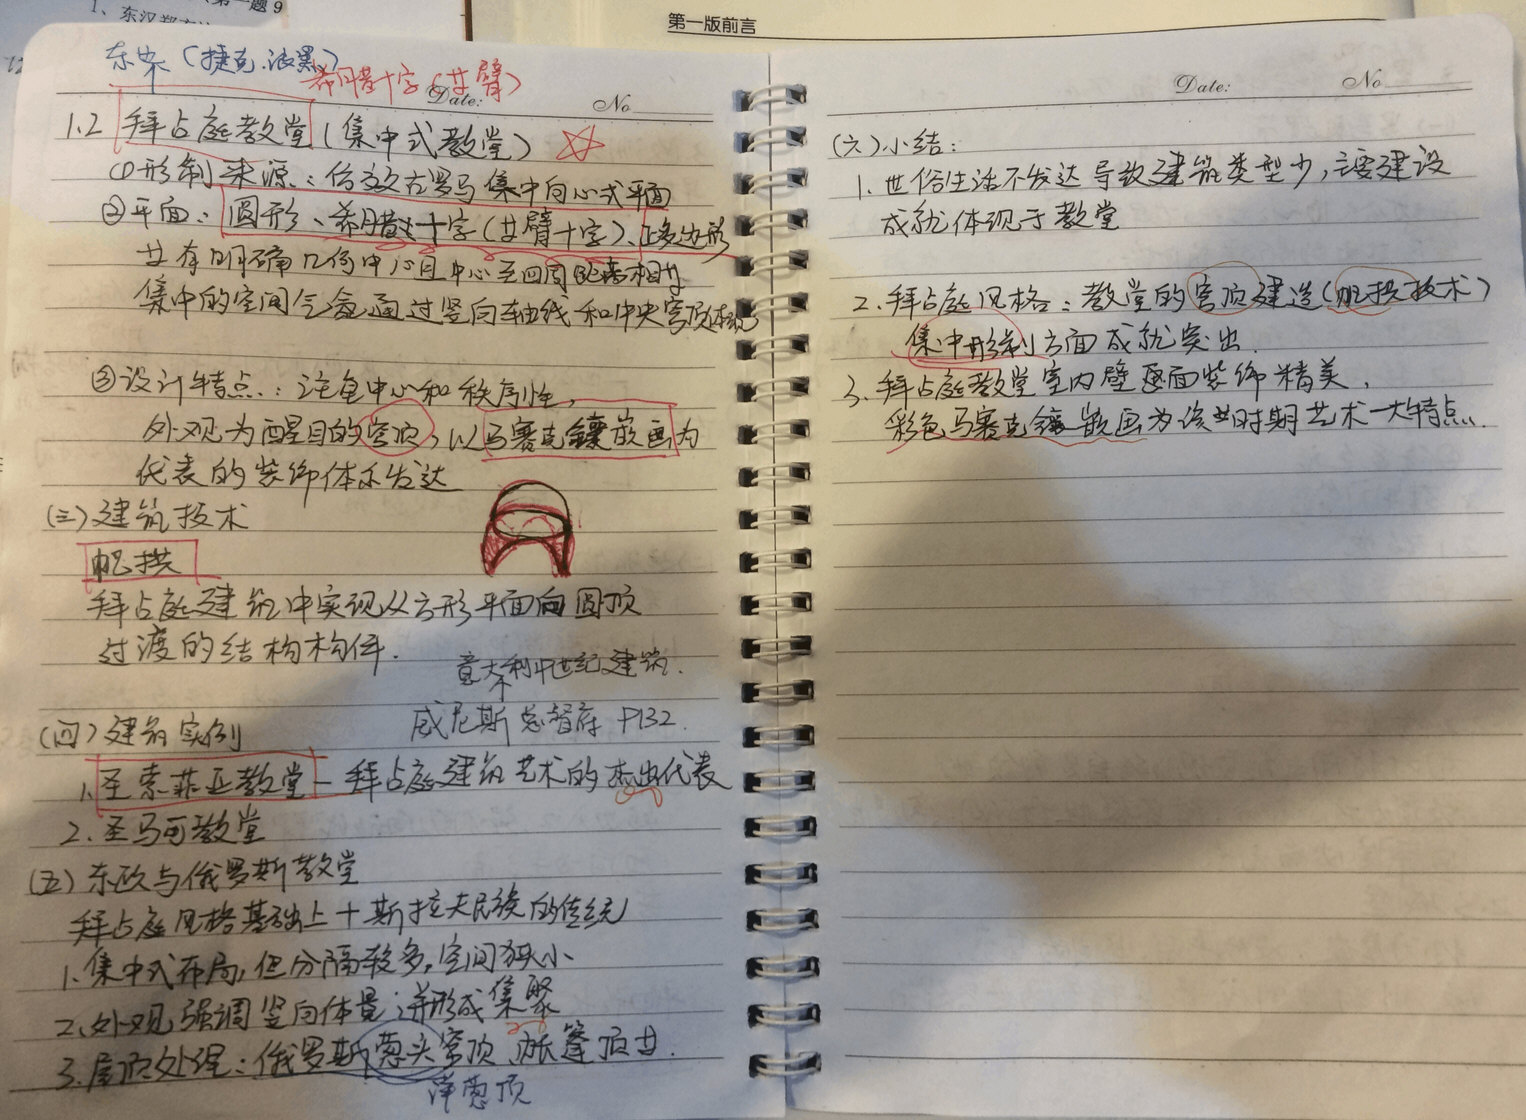 第一版前言
东
希腊十字(廿臂)
Date:
No
1.2 拜占庭教堂(集中式教堂)
①形制来源:仿效古罗马集中向心式平面
②平面:圆形、希腊十字(廿臂十字)、正多边形
廿有明确几何中心且中心至四周距离相廿
集中的空间气氛通过竖向轴线和中央穹顶体现
③设计特点:注重中心和秩序性,
外观为醒目的穹顶,以马赛克镶嵌画为
代表的装饰体系发达
(三)建筑技术
帆拱
拜占庭建筑中实现从方形平面向圆顶
过渡的结构构件.
意大利中世纪建筑.
威尼斯总督府 P132.
(四)建筑实例
1.圣索菲亚教堂—拜占庭建筑艺术的杰出代表
2.圣马可教堂
(五)东欧与俄罗斯教堂
拜占庭风格基础上+斯拉夫民族的传统
1.集中式布局,但分隔较多,空间狭小
2.外观强调竖向体量,并形成集聚
3.屋顶处理:俄罗斯葱头穹顶、帐篷顶廿.
洋葱顶
Date:
No
(六)小结:
1.世俗生活不发达导致建筑类型少,主要建设
成就体现于教堂
2.拜占庭风格:教堂的穹顶建造(帆拱技术)
集中形制方面成就突出.
3.拜占庭教堂室内壁画面装饰精美,
彩色马赛克镶嵌画为该时期艺术一大特点.